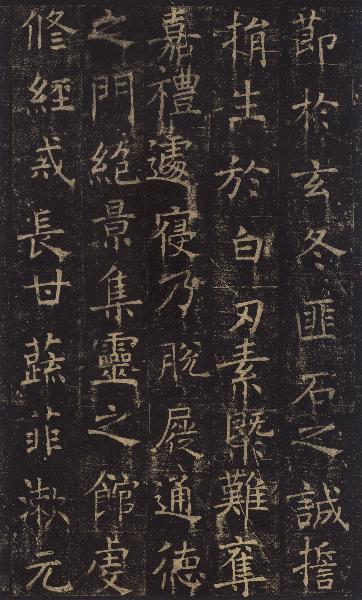 節於玄冬匪石之誠
捐生於白刃素槩難奪
嘉禮遽寑乃脫屣通德
之門絕景集靈之館虔
修經戒長甘蔬菲漱元